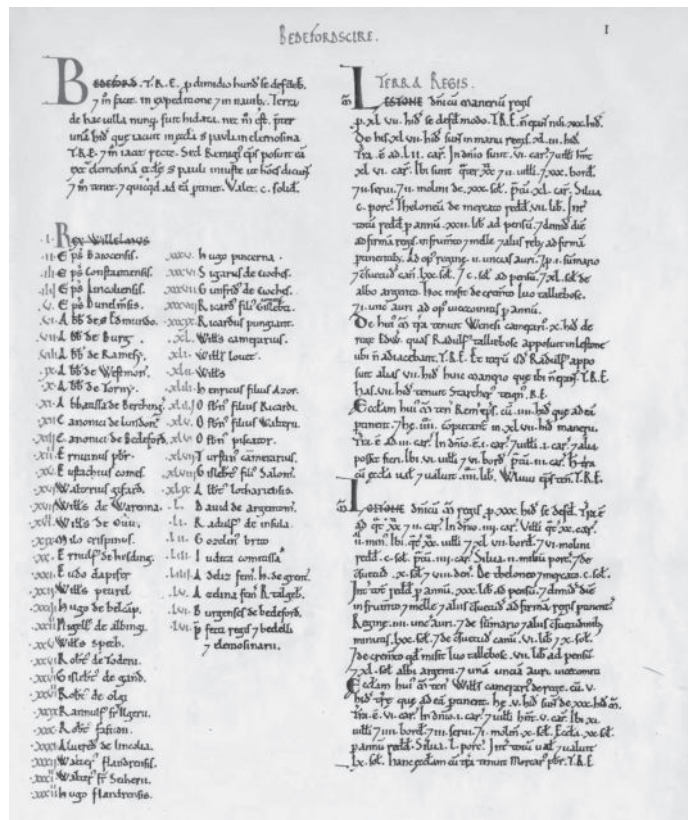 BEDEFORDSCIRE.
I
BEDEFORD. T.R.E. p dimidio hund se defdeb.
7 m̄ facit. in expeditione 7 in nauib. Terra
de hac uilla nunq̄ fuit hidata. nec m̄ est. p̄ter
unā hid que iacuit in eccła s pauli in elemosina
T.R.E. 7 m̄ iacet recte. Sed Remigi' ep̄s posuit eā
ext elemosinā eccłæ s pauli iniuste ut hoēs dicunt
7 m̄ tenet. 7 quicqd ad eā ptinet. Valet. c. solid.
.I. Rex Willelmus
.II. Ep̄s Baiocensis.
.III. Ep̄s Constantiensis.
.IIII. Ep̄s Lincoliensis.
.V. Ep̄s Dunelmsis.
.VI. Abb de S Edmundo.
.VII. Abb de Burg.
.VIII. Abb de Ramesy.
.IX. Abb de Westmon.
.X. Abb de Torny.
.XI. Abbatissa de Berching.
.XII. Canonici de London
.XIII. Canonici de Bedeford.
.XIIII. Ernuinus pbr.
.XV. Eustachius comes.
.XVI. Walterius gifard.
.XVII. Wills de Warenna.
.XVIII. Wills de Ou.
.XIX. Milo crispinus.
.XX. Ernulf' de hesding.
.XXI. Eudo dapifer
.XXII. Wills peurel
.XXIII. Hugo de belcāp.
.XXIIII. Nigell' de albingi.
.XXV. Wills spech.
.XXVI. Robt' de Todeni.
.XXVII. Gislebt' de gand.
.XXVIII. Robt' de olgi
.XXIX. Rannulf' fr Ilgerii.
.XXX. Robt' fafiton.
.XXXI. Alueredus de lincolia.
.XXXII. Walter' flandrensis.
.XXXIII. Walter' fr Seiherii.
.XXXIIII. Hugo flandrensis.
.XXXV. Hugo pincerna.
.XXXVI. Sigarus de cioches.
.XXXVII. Gunfrid' de cioches.
.XXXVIII. Ricard' fili' Gislebti.
.XXXIX. Ricardus pungiant.
.XL. Wills camerarius.
.XLI. Wills louet.
.XLII. Wills
.XLIII. Henricus filius Azor.
.XLIIII. Osbn' filius Ricardi.
.XLV. Osbn' filius Walterii.
.XLVI. Osbn' piscator.
.XLVII. Turstin' camerarius.
.XLVIII. Gislebt' fili' Salom.
.XLIX. Albt' lothariensis.
.L. Dauid de argentom.
.LI. Radulf' de insula.
.LII. Gozelin' brito
.LIII. Iudita comitissa
.LIIII. Adeliz fem. H. de grent.
.LV. Azelina fem R tallgeb.
.LVI. Burgenses de bedeford.
.LVII. p̄fecti regis 7 bedelli
7 elemosinarii.
TERRA REGIS.
LESTONE dn̄icū maneriū regis
p. xl. vii. hid se defd modo. T.R.E. n̄ erant nisi. xxx. hid.
De his. xl. vii. hid sunt in manu regis. xl. iii. hid
Tra. ē. ad. l. ii. car. In dnio sunt. vi. car. 7 uilli hnt
xl. vi. car. Ibi sunt quat' xx' 7 ii. uilli. 7 xxx. bord.
7 ii. serui. 7 ii. molini de. xxx. sol. p̄tū. xl. car. Silua
c. porc. Theloneū de mercato redd. vii. lib. Int
totū redd p annū. xxii. lib ad pensū. 7 dimid diē
ad firmā regis. in frumto 7 melle 7 aliis reb' ad firmā
ptinentib'. Ad op' regine. ii. uncias auri. 7 p. i. sūmario
7 c̄suetud canū. lxx. sol. 7 c. sol ad pensū. 7 xl. sol de
albo argento. Hoc misit de crem̄to Iuo tallebosc.
7 i. unc auri ad op' uicecomitis p annū.
De hui' m̄ tra tenuit Wenesi camerari'. x. hid de
rege Edw. quas Radulf' tallebosc apposuit in lestone
ubi n̄ adiacebant. T.R.E. Et iterū isd Radulf' appo
suit alias. vii. hid huic manerio que ibi n̄ erant. T.R.E.
Has. vii. hid tenuit Starcher teign' R.E.
Eccłam hui' m̄ ten Rem' ep̄s. cū. iiii. hid que ad eā
ptinent. 7 hę. iiii. cōputant in. xl. vii. hid manerii.
Tra. ē. ad. iii. car. In dnio. ē. i. car. 7 uilli. i. car. 7 alia
posset fieri. Ibi. vi. uilli 7 vi. bord. p̄tū. iii. car. H tra
cū eccła ual 7 ualuit. iiii. lib. Wluui ep̄s ten. T.R.E.
LOITONE dn̄icū m̄ regis. p. xxx. hid se defd. Tra ē
ad q̄t' xx' 7 ii. car. In dnio. iiii. car. Villi q̄t' xx. car.
ii. min'. Ibi q̄t' xx. uilli 7 xl. vii. bord. 7 vi. molini
redd. c. sol. p̄tū. iiii. car. Silua. ii. miliū porc. 7 de
c̄suetud. x. sol' 7 viii. den. De theloneo 7 mercato. c. sol.
Int totū redd p annū. xxx. lib. ad pensū. 7 dimid diē
in frumto 7 melle 7 aliis c̄suetud ad firmā regis ptinent'.
Regine. iiii. unc auri. 7 de sūmario 7 aliis c̄suetudinib'
minutis. lxx. sol. 7 de c̄suetud canū. vi. lib 7 x. sol.
7 de crem̄to qd misit Iuo tallebosc. vii. lib ad pensū
7 xl. sol albi argenti. 7 unā unciā auri uicecomiti
Eccłam hui' m̄ ten Wills camerari' de rege. cū. v.
hid træ que ad eā ptinent. hę. v. hid sunt de xxx. hid m̄.
Tra. ē. vi. car. In dnio. i. car. 7 uilli hnt. v. car. Ibi xi.
uilli 7 iiii. bord. 7 iii. serui. 7 i. molin' x. sol. Eccła. xx. sol.
p annū redd. Silua. l. porc. Int totū ual 7 ualuit
lx. sol. Hanc eccłam cū tra tenuit Morcar' pbr. T.R.E